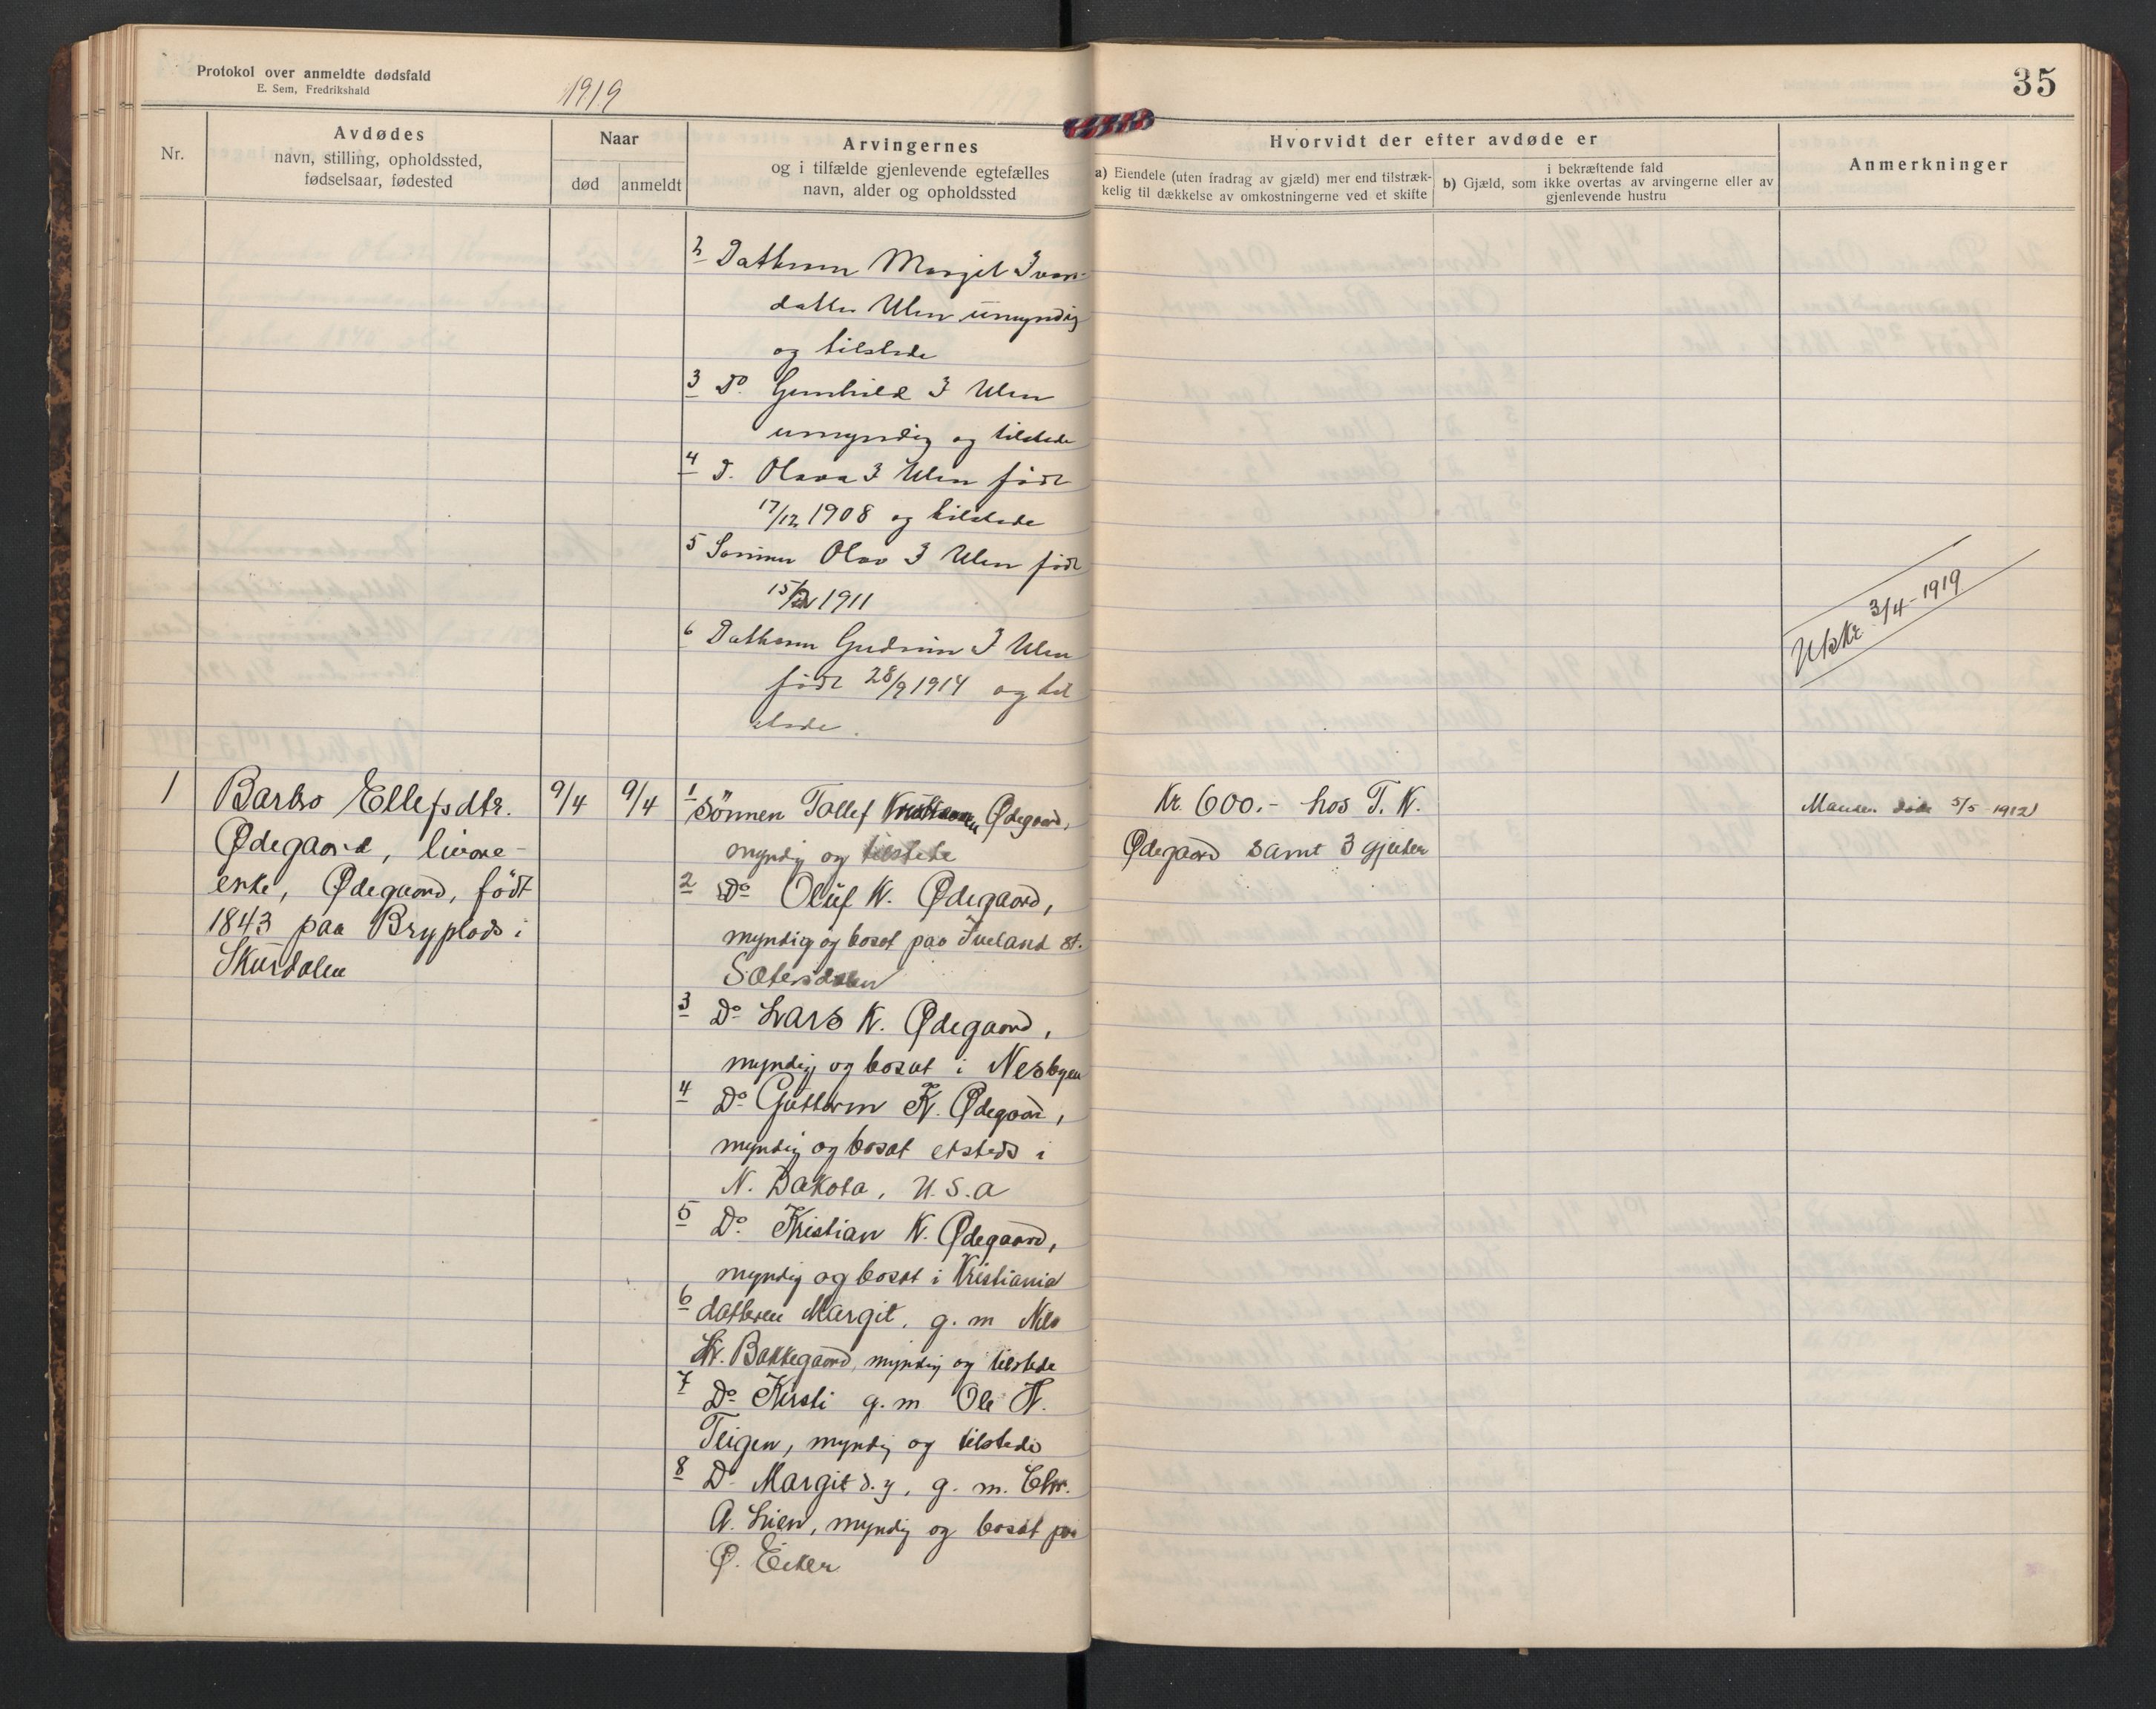 Protokol over anmeldte dødsfald
E. Sem, Fredrikshald
1919
35
Nr.
Avdødes
navn, stilling, opholdssted,
fødselsaar, fødested
Naar
død
anmeldt
Arvingernes
og i tilfælde gjenlevende egtefælles
navn, alder og opholdssted
Hvorvidt der efter avdøde er
a) Eiendele (uten fradrag av gjæld) mer end tilstræk-
kelig til dækkelse av omkostningerne ved et skifte
i bekræftende fald
b) Gjæld, som ikke overtas av arvingerne eller av
gjenlevende hustru
Anmerkninger
2 Datteren Margit Ivers-
datter Ulen umyndig
og tilstede
3 Do Gunhild I Ulen
umyndig og tilstede
4 D. Olava I Ulen født
17/12 1908 og tilstede
5 Sønnen Olav I Ulen født
1911
6 Datteren Gudrun I Ulen
født 28/9 1914 og til
stede.
3/4-1919
1
Barbo Ellefsdtr.
Ødegaard, livøre-
enke, Ødegaard, født
1843 paa Bryplads i
Skurdalen
9/4
9/4
1 Sönnen Tollef Ødegaard,
myndig og tilstede
2 Do Oluf K. Ødegaard,
myndig og bosat paa Iveland st.
Sætersdalen
3 Do Lars K. Ødegaard,
myndig og bosat i Nesbyen
4 Do Guttorm K. Ødegaard,
myndig og bosat etsteds i
N. Dakota, U.S.a
5 Do Kristian K. Ødegaard,
myndig og bosat i Kristiania
6 datteren Margit, g. m Nils
Bakkegaard, myndig og tilstede
7 Do Kirsti g. m Ole K.
Teigen, myndig og tilstede
8 Do Margit d.y, g. m. Chr.
A. Lien, myndig og bosat paa
Ø. Eiker
Kr. 600.- hos T. K.
Ødegaard samt 3 gjeter
Manden døde 5/5-1912